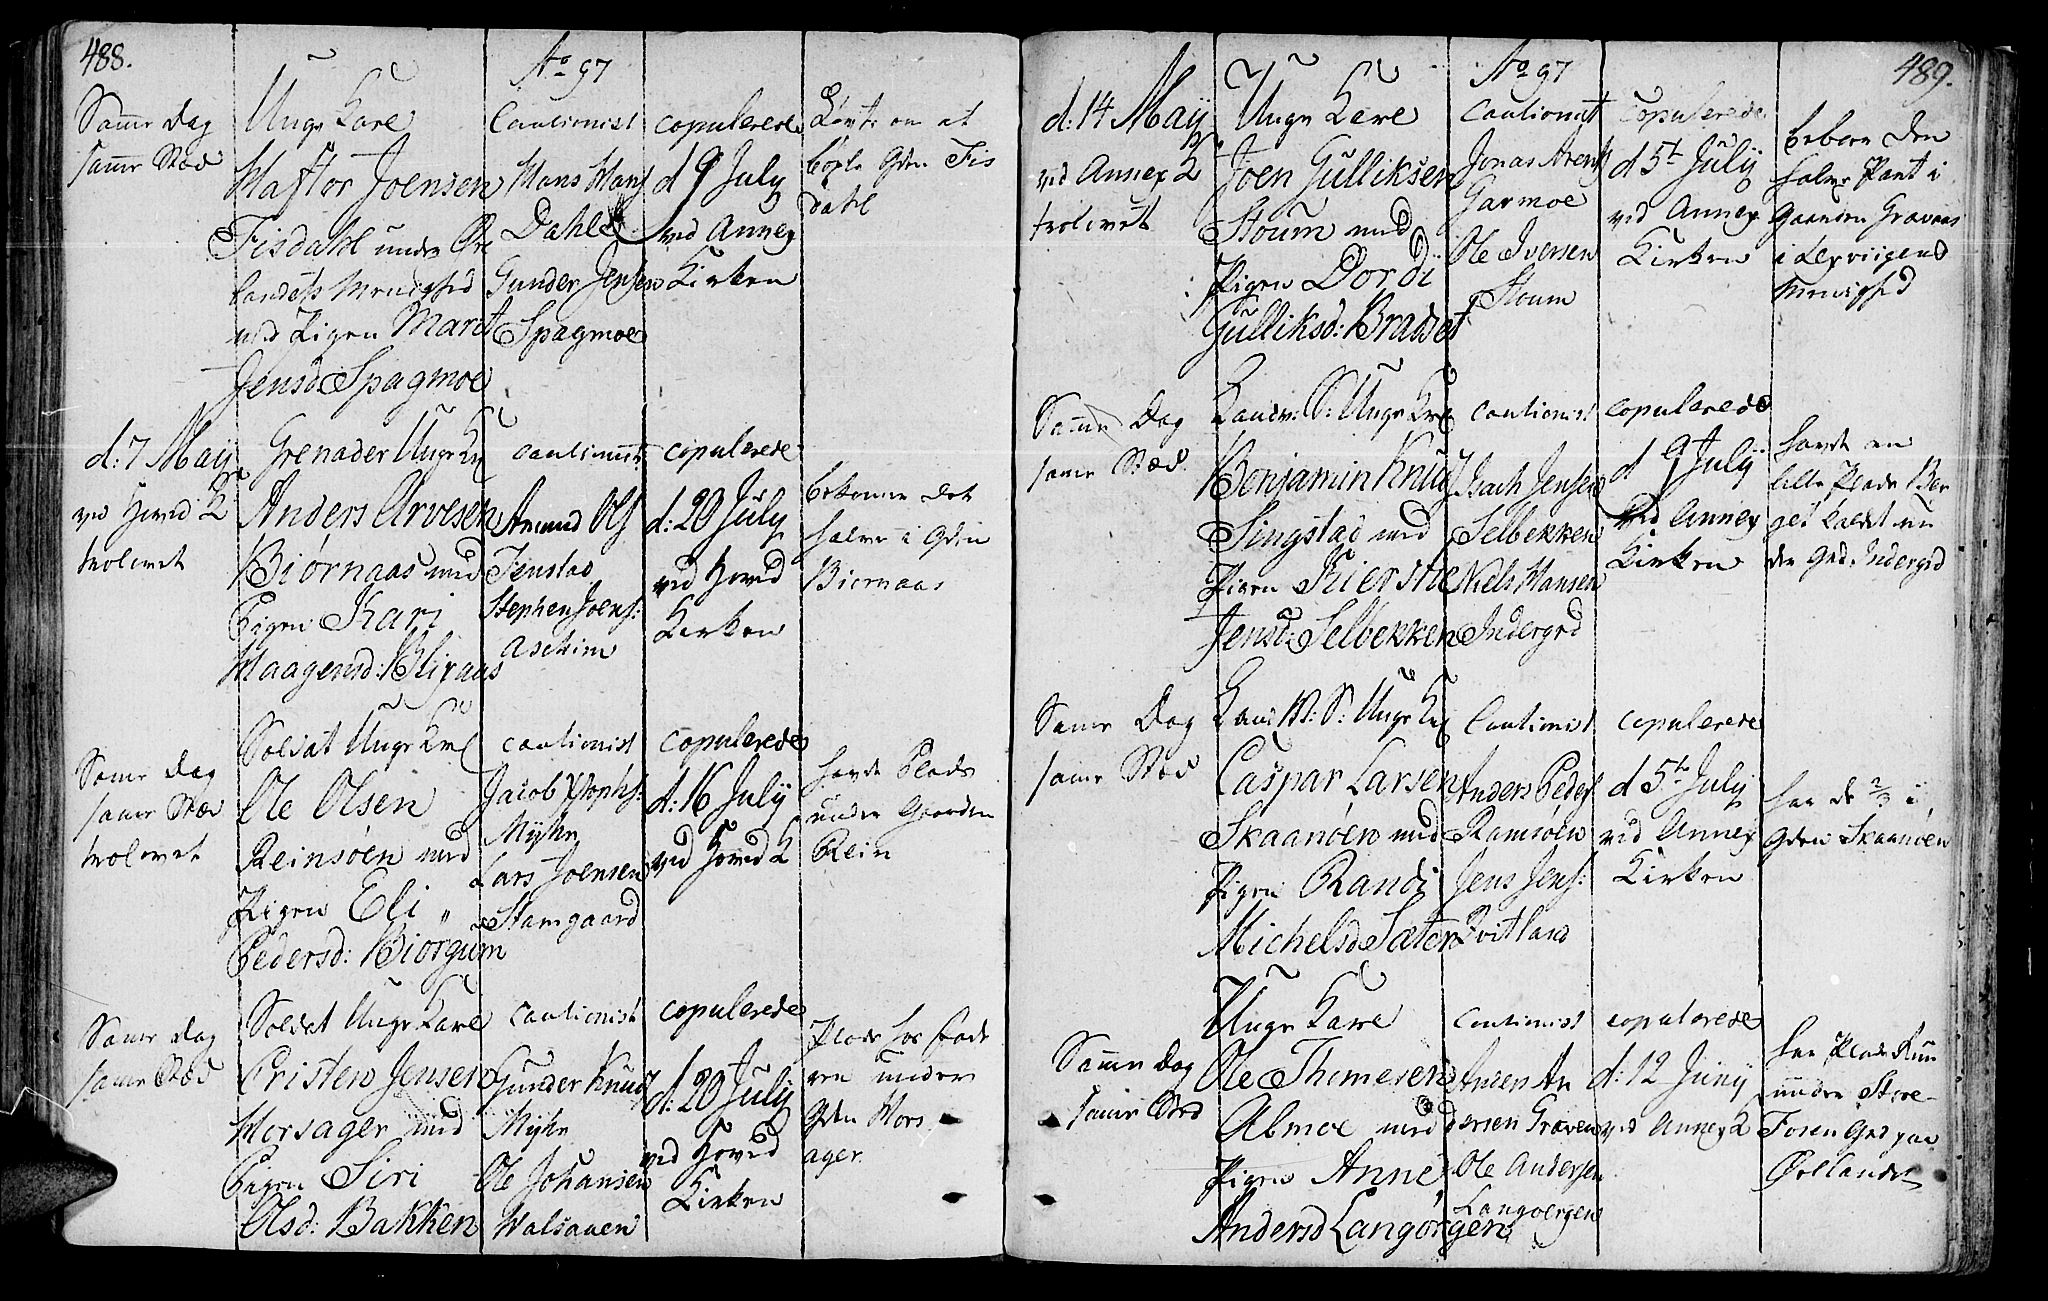 488.
Ao 97
Samme Dag
samme Stæd
Unge Karl
Haftor Joensen
Fisdahl under Øre
landets Menighed
ved Pigen Marit
Jensd Spagmoe
Cautionist
Hans Hans
Dahle
Gunder Jensen
Spagmoe
copulerede
d 9 July
ved Annex
Kirken
bøxle Gden Fis
dahl
d: 7 May
ved Hoved K
trolovet
Grenader Unge K
Anders Arvesen
Biørnaas med
Pigen Kari
Haagensd: Blixaas
Cautionist
Amund Ols
Jenstad
Stephen Joens:
Aschim
copulerede
d: 20 July
ved Hoved
Kirken
bekomer det
halve i Gden
Biørnaas
Same Dag
same Stæd
trolovet
Soldat Unge K
Ole Olsen
Reinsøen med
Pigen Eli „
Pedersd: Biørgum
Cautionist
Jacob
Myhr
Lars Joensen
Stamgaard
copulerede
d: 16 July
ved Hoved K
havde Plads
under Gaarden
Rein
Same Dag
same Stæd
Soldat Unge Karl
Cristen Jensen
Horsager med
Pigen Siri
Olsd: Bakken
Cautionist
Gunder Knud
Myhr
Ole Johansen
Halsauen
copulerede
d: 20 July
ved Hoved
Kirken
Plads hos fade
ren under
Gden Hors
ager.
489.
Ao 97
d: 14 May
ved Annex K
trolovet
Unge Karl
Joen Gulliksen
Stoum med
Pigen Dordi
Gulliksd: Bradset
Cautionist
Jonas Arents
Garmoe
Ole Iversen
Stoum
copulerede
d 5te July
ved Annex
Kirken
beboer den
halve Part i
Gaarden Gravaas
i Lexviigens
Menighed
Samme Dag
same Stæd
Landv: S: Unge K
Benjamin Knud
Singstad med
Pigen Kierstie
Jensd: Selbekken
Cautionist
Isach Jensen
Selbekken
Niels Hansen
Indergrd
copulerede
d 9 July
ved Annex
Kirken
havde en
lille Plads Ber
get kaldet un
der Grd. Indergrd
Same Dag
same Stæd
Land W: S: Unge K
Caspar Larsen
Skaanøen med
Pigen Randi
Michelsd Sæter
Cautionist
Anders Peders
Ramsøen
Jens Jens:
Qvitland
copulerede
d 5te July
ved Annex
Kirken
har de 2/3 i
Gden Skaanøen
Samme Dag
same Sted
Unge Karl
Ole Thomesen
Almoe med
Pigen Anne
Andersd Langørgen
Cautionist
Ansen An
dersen Græven
Ole Andersen
Langoergen
copulerede
d: 12 Juny
ved Annex K
har Plads
under Store-
Fosen Grd paa
Ørlandet